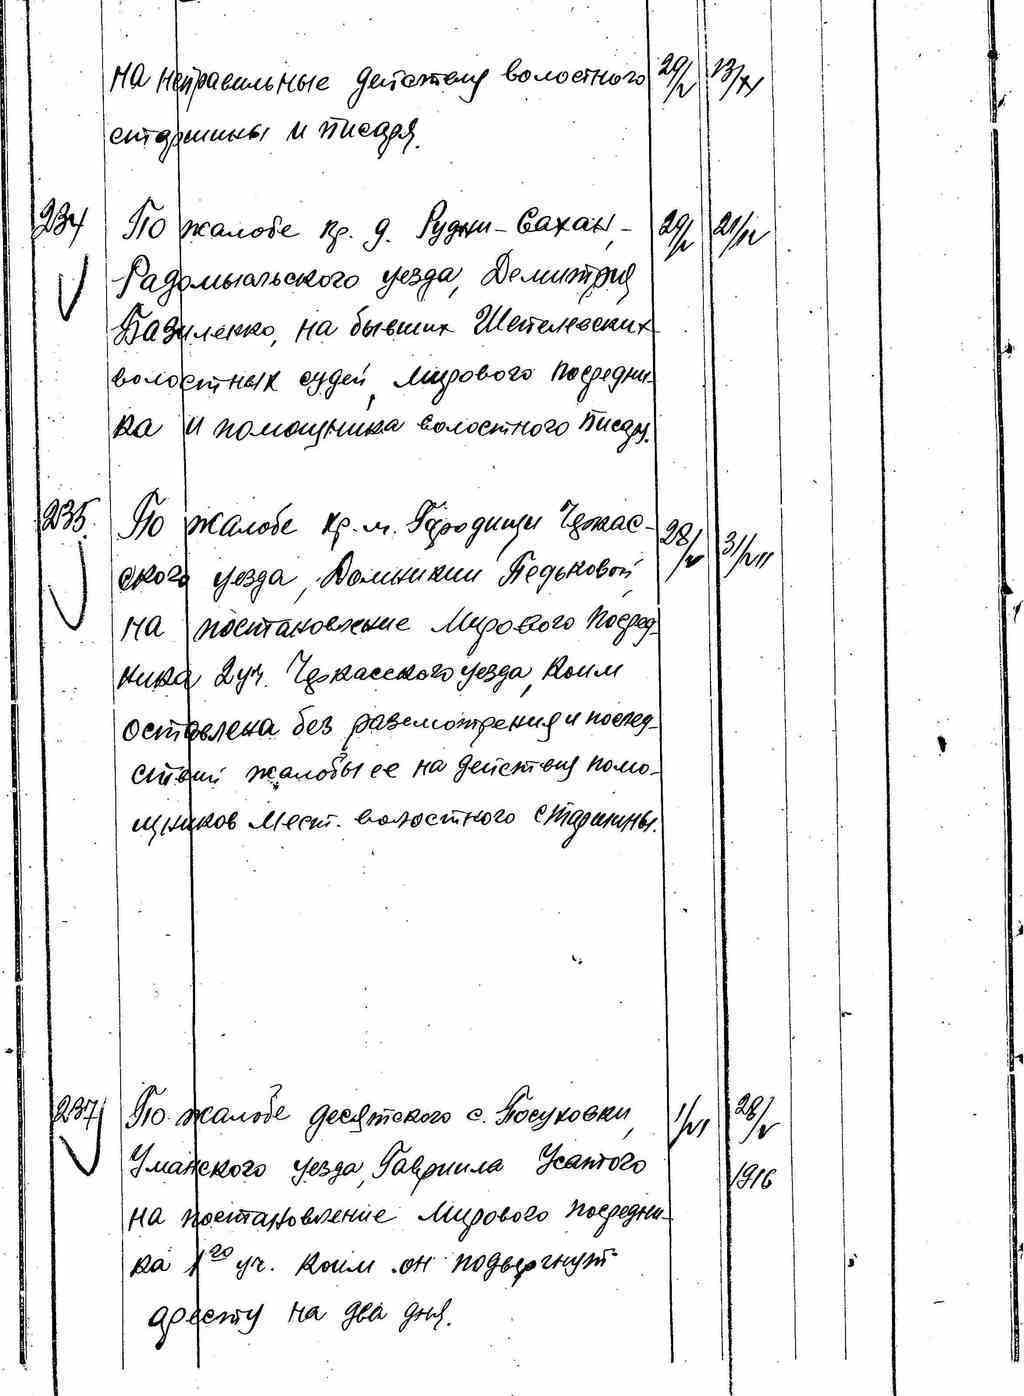 на неправильные действия волостного 29/V 13/XI
старшины и писаря.
234 По жалобе кр. д. Рудни-Сахан, 29/V 21/IV
Радомысльского уезда, Демитрия
Базиленко, на бывших Шепелевских
волостных судей, мирового посредни-
ка и помощника волостного писаря.
235. По жалобе кр. м. Городищи Черкас- 28/V 31/VIII
ского уезда, Домникии Педьковой,
на постановление Мирового Посред-
ника 2 уч. Черкасского уезда, коим
оставлена без разсмотрения и послед-
ствий жалобы ее на действия помо-
щников мест. волостного старшины.
237 По жалобе десятского с. Посуховки, 1/VI 28/V
Уманского уезда, Гавриила Усатого 1916
на постановление Мирового посредни-
ка 1го уч. коим он подвергнут
аресту на два дня.